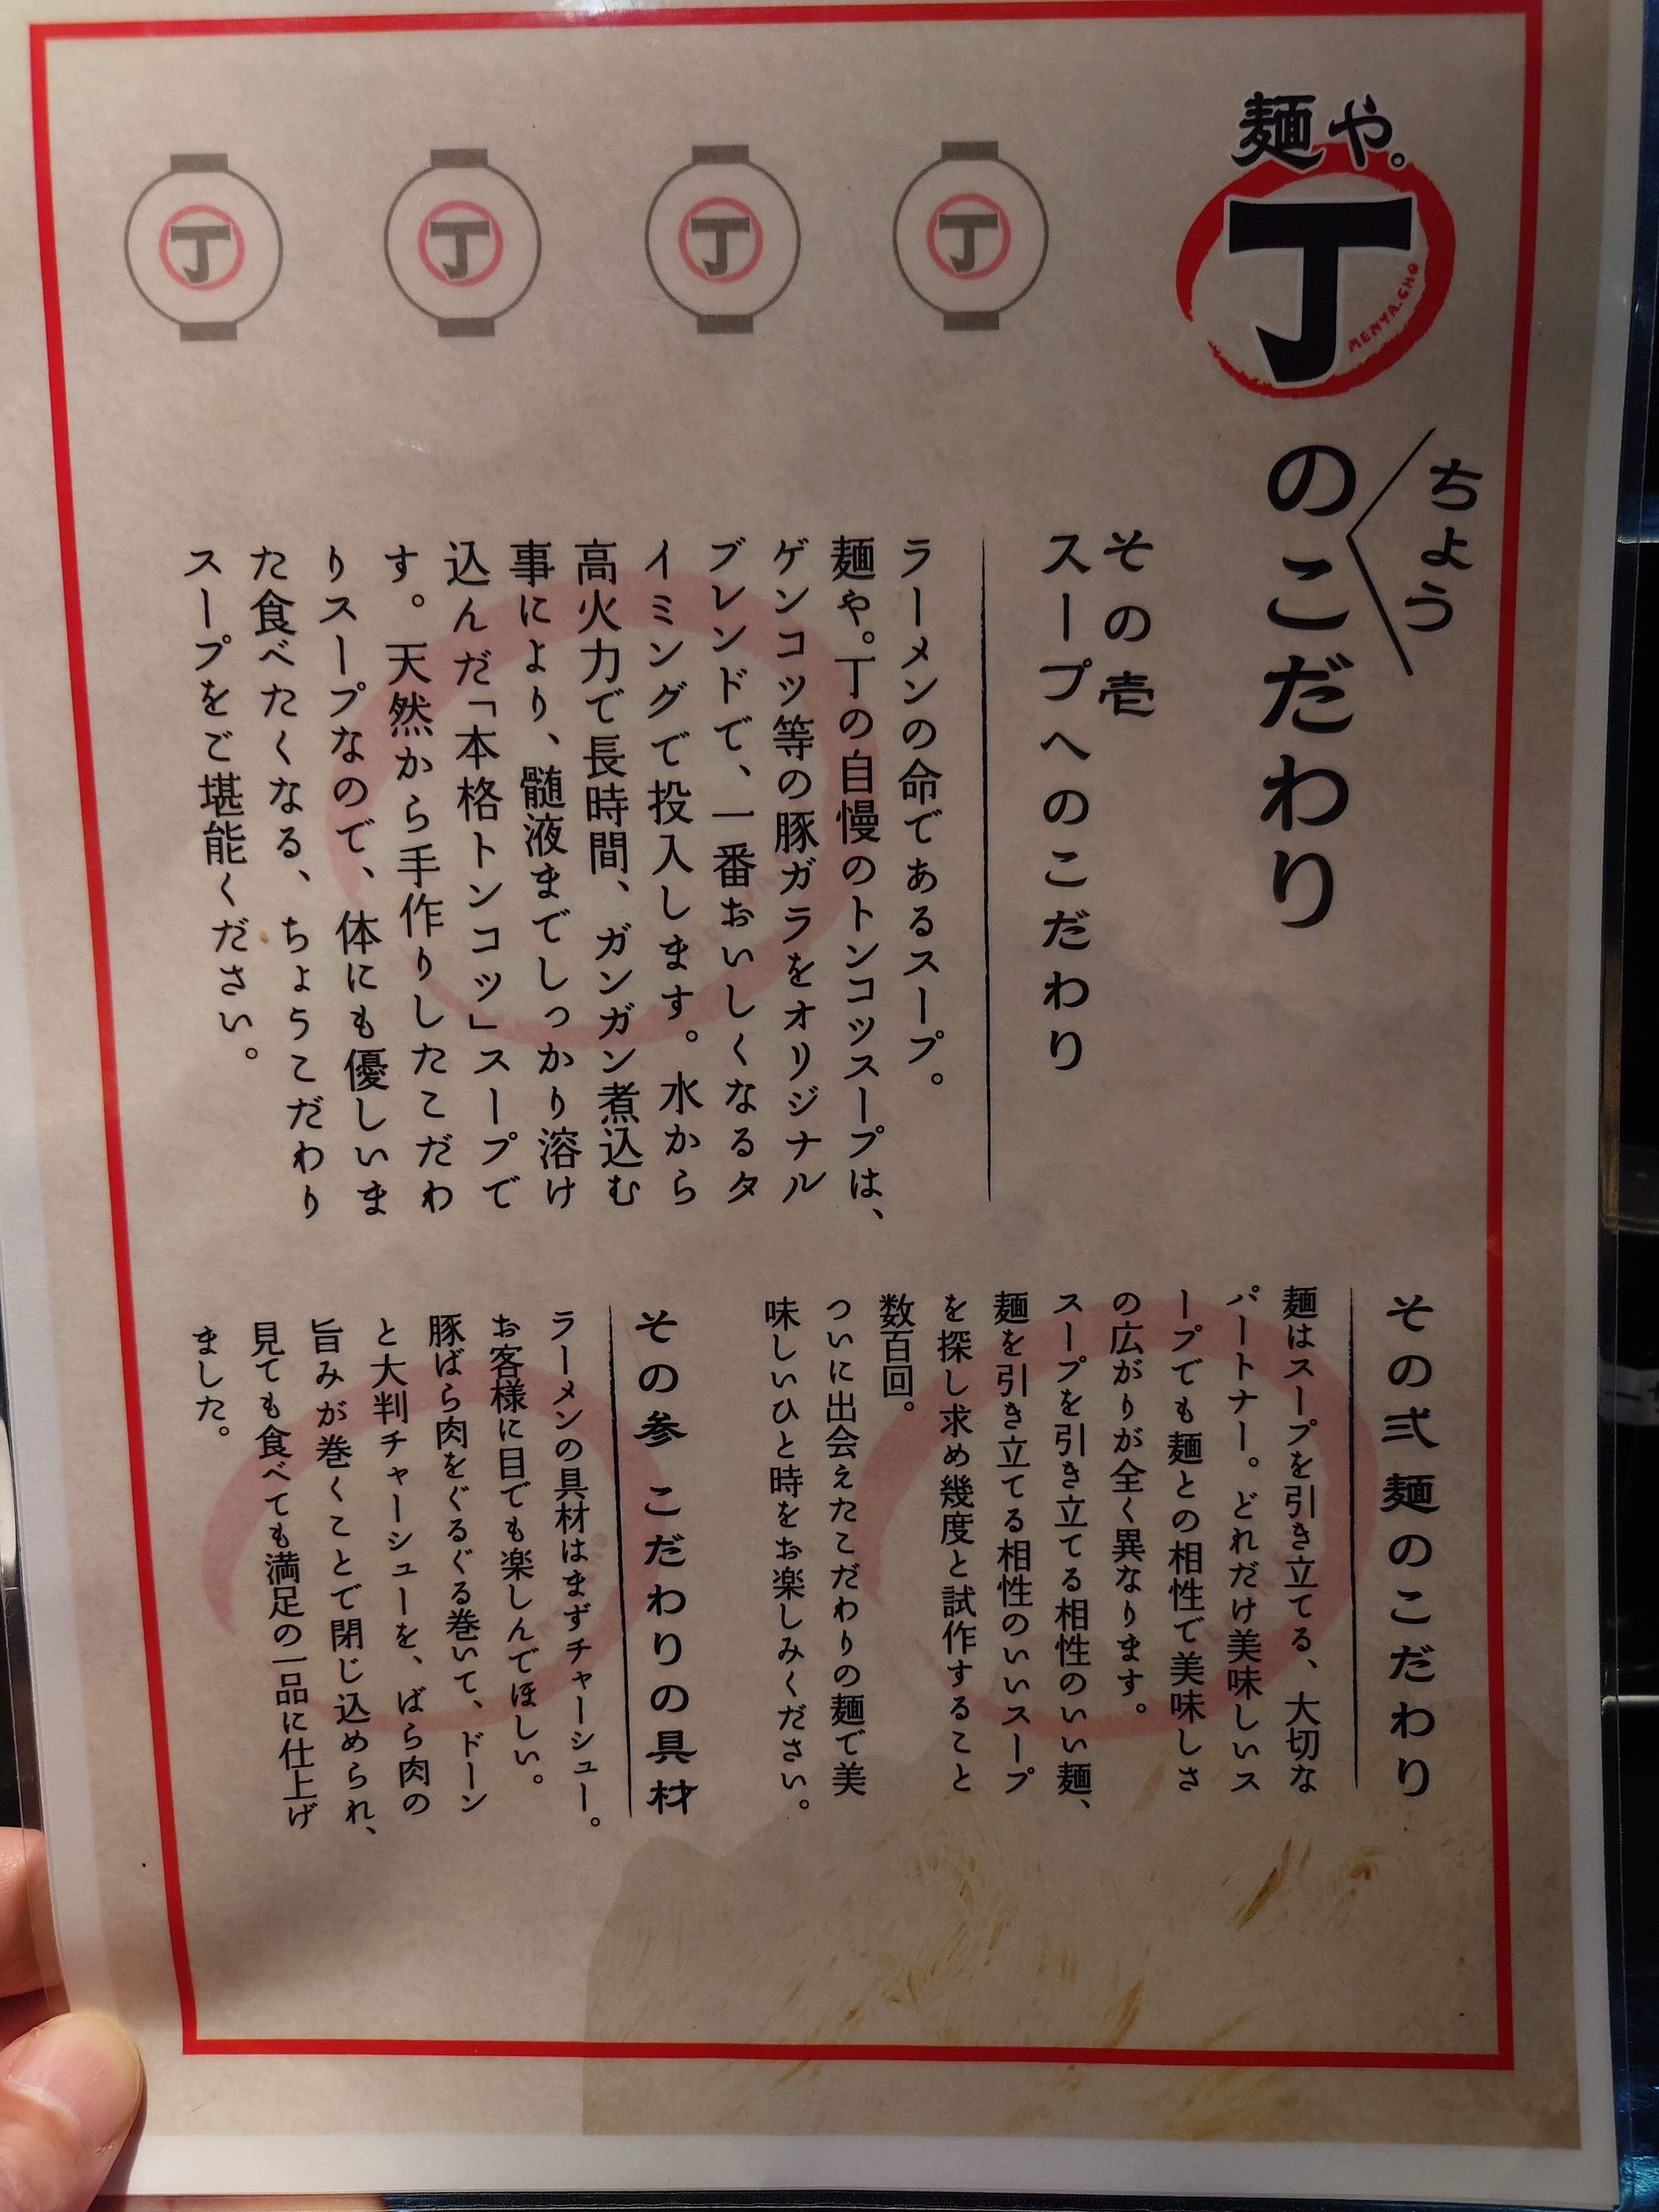 麺や。
丁
MENYA.CHO
のこだわり
ちょう
その壱
スープへのこだわり
ラーメンの命であるスープ。
麺や。丁の自慢のトンコツスープは、
ゲンコツ等の豚ガラをオリジナル
ブレンドで、一番おいしくなるタ
イミングで投入します。水から
高火力で長時間、ガンガン煮込む
事により、髄液までしっかり溶け
込んだ「本格トンコツ」スープで
す。天然から手作りしたこだわ
りスープなので、体にも優しいま
た食べたくなる、ちょうこだわり
スープをご堪能ください。
その弐 麺のこだわり
麺はスープを引き立てる、大切な
パートナー。どれだけ美味しいス
ープでも麺との相性で美味しさ
の広がりが全く異なります。
スープを引き立てる相性のいい麺、
麺を引き立てる相性のいいスープ
を探し求め幾度と試作すること
数百回。
ついに出会えたこだわりの麺で美
味しいひと時をお楽しみください。
その参 こだわりの具材
ラーメンの具材はまずチャーシュー。
お客様に目でも楽しんでほしい。
豚ばら肉をぐるぐる巻いて、ドーン
と大判チャーシューを、ばら肉の
旨みが巻くことで閉じ込められ、
見ても食べても満足の一品に仕上げ
ました。
丁
丁
丁
丁